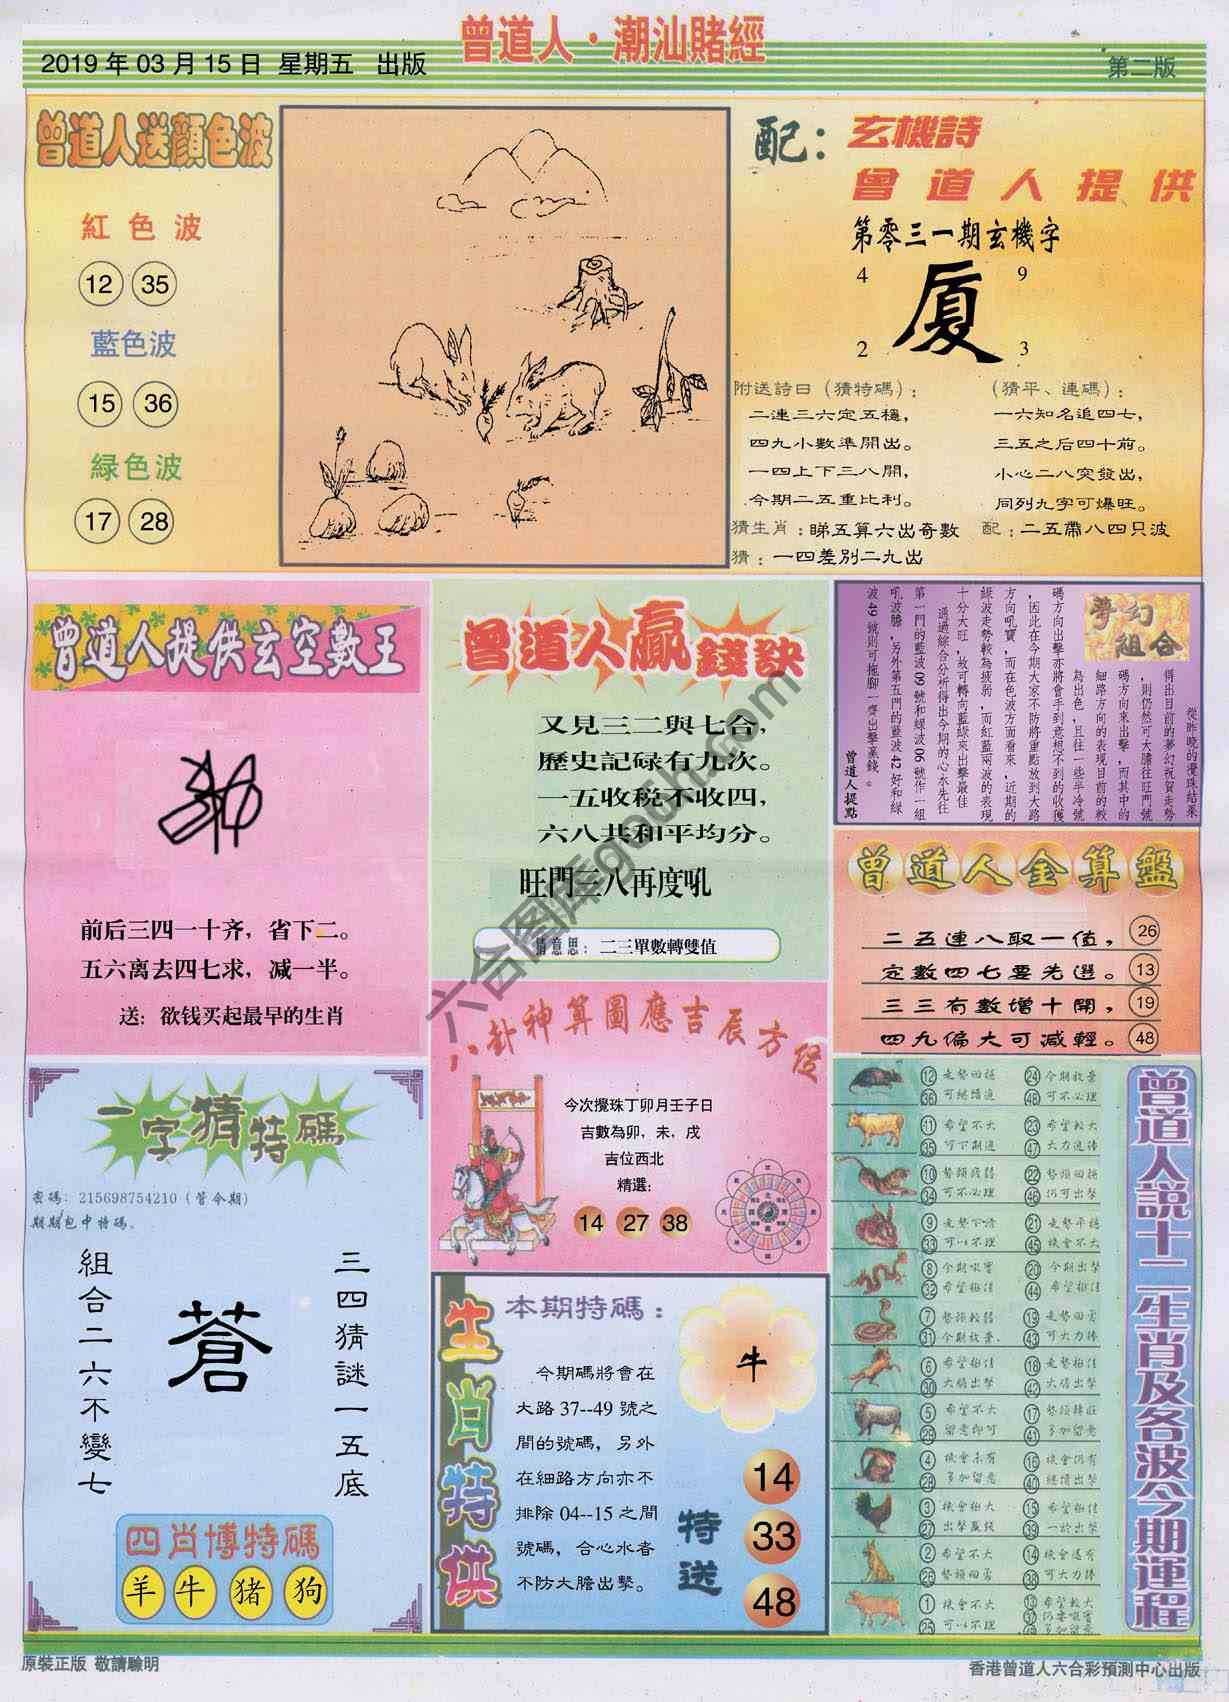 曾道人·潮汕賭經
2019年03月15日 星期五 出版
第二版
曾道人送顏色波
紅色波
12 35
藍色波
15 36
綠色波
17 28
配：玄機詩
曾道人提供
第零三一期玄機字
4 9
廈
2 3
附送詩曰（猜特碼）：
二連三六定五穩，
四九小數準開出。
一四上下三八開，
今期二五重比利。
（猜平、連碼）：
一六知名追四七，
三五之后四十前。
小心二八突發出，
同列九字可爆旺。
猜生肖：睇五算六出奇數 配：二五帶八四只波
猜：一四差別二九出
曾道人提供玄空數王
前后三四一十齐，省下二。
五六离去四七求，减一半。
送：欲钱买起最早的生肖
曾道人贏錢訣
又見三二與七合，
歷史記碌有九次。
一五收税不收四，
六八共和平均分。
旺門三八再度吼
猜意思：二三單數轉雙值
夢幻組合
從昨晚的攪珠結果
得出目前的夢幻祝賀走勢
，則仍然可大膽往旺門號
碼方向來出擊，而其中的
細路方向的表現目前的較
為出色，且往一些半冷號
碼方向出擊亦將會手到意想不到的收獲
，因此在今期大家不防將重點放到大路
方向吼寶，而在色波方面看來，近期的
綠波走勢較為疲弱，而紅藍兩波的表現
十分大旺，故可轉向藍綠來出擊最佳
通過綜合分析得出今期的心水先往
第一門的藍波09號和綠波06號作一組
吼波膽，另外第五門的藍波42好和綠
波49號則可拖腳一齊出擊裏錢。
曾道人提點
曾道人金算盤
二五連八取一值，26
定數四七要先選。13
三三有數增十開，19
四九偏大可減輕。48
八卦神算圖應吉辰方位
:
今次攪珠丁卯月壬子日
吉數為卯，未，戌
吉位西北
精選:
14 27 38
一字猜特碼
密碼：215698754210（管今期）
期期包中特碼。
三四猜謎一五底
蒼
組合二六不變七
四肖博特碼
羊 牛 猪 狗
生肖特供
本期特碼：
今期碼將會在
大路37--49號之
間的號碼，另外
在細路方向亦不
排除04--15之間
號碼，合心水者
不防大膽出擊。
牛
特送
14
33
48
曾道人説十二生肖及各波今期運程
12 走勢回穩 24 今期放棄
36 可繼續追 48 可不必理
11 希望不大 23 希望較大
35 可下期追 47 大力追捧
10 勢頭疲弱 22 勢頭回穩
34 可不必理 46 仍可出擊
9 走勢下滑 21 走勢平穩
33 可以不理 45 機會不大
8 今期吸實 20 今期出擊
32 希望極佳 44 希望極佳
7 勢頭較弱 19 走勢回勇
31 今期放棄 43 可大力捧
6 希望極佳 18 走勢極佳
30 大膽出擊 42 大膽出擊
5 希望不大 17 勢頭轉旺
29 留意即可 41 多加留意
4 機會未有 16 機會仍有
28 多加留意 40 繼續出擊
3 機會極大 15 希望極佳
27 出擊贏錢 39 一於出擊
2 希望不大 14 機會還有
26 勢頭回勇 38 可大力捧
1 機會不大 13 希望較大
25 可以不理 37 仍要吸實
原裝正版 敬請驗明
香港曾道人六合彩預測中心出版
六合图库gocih.com